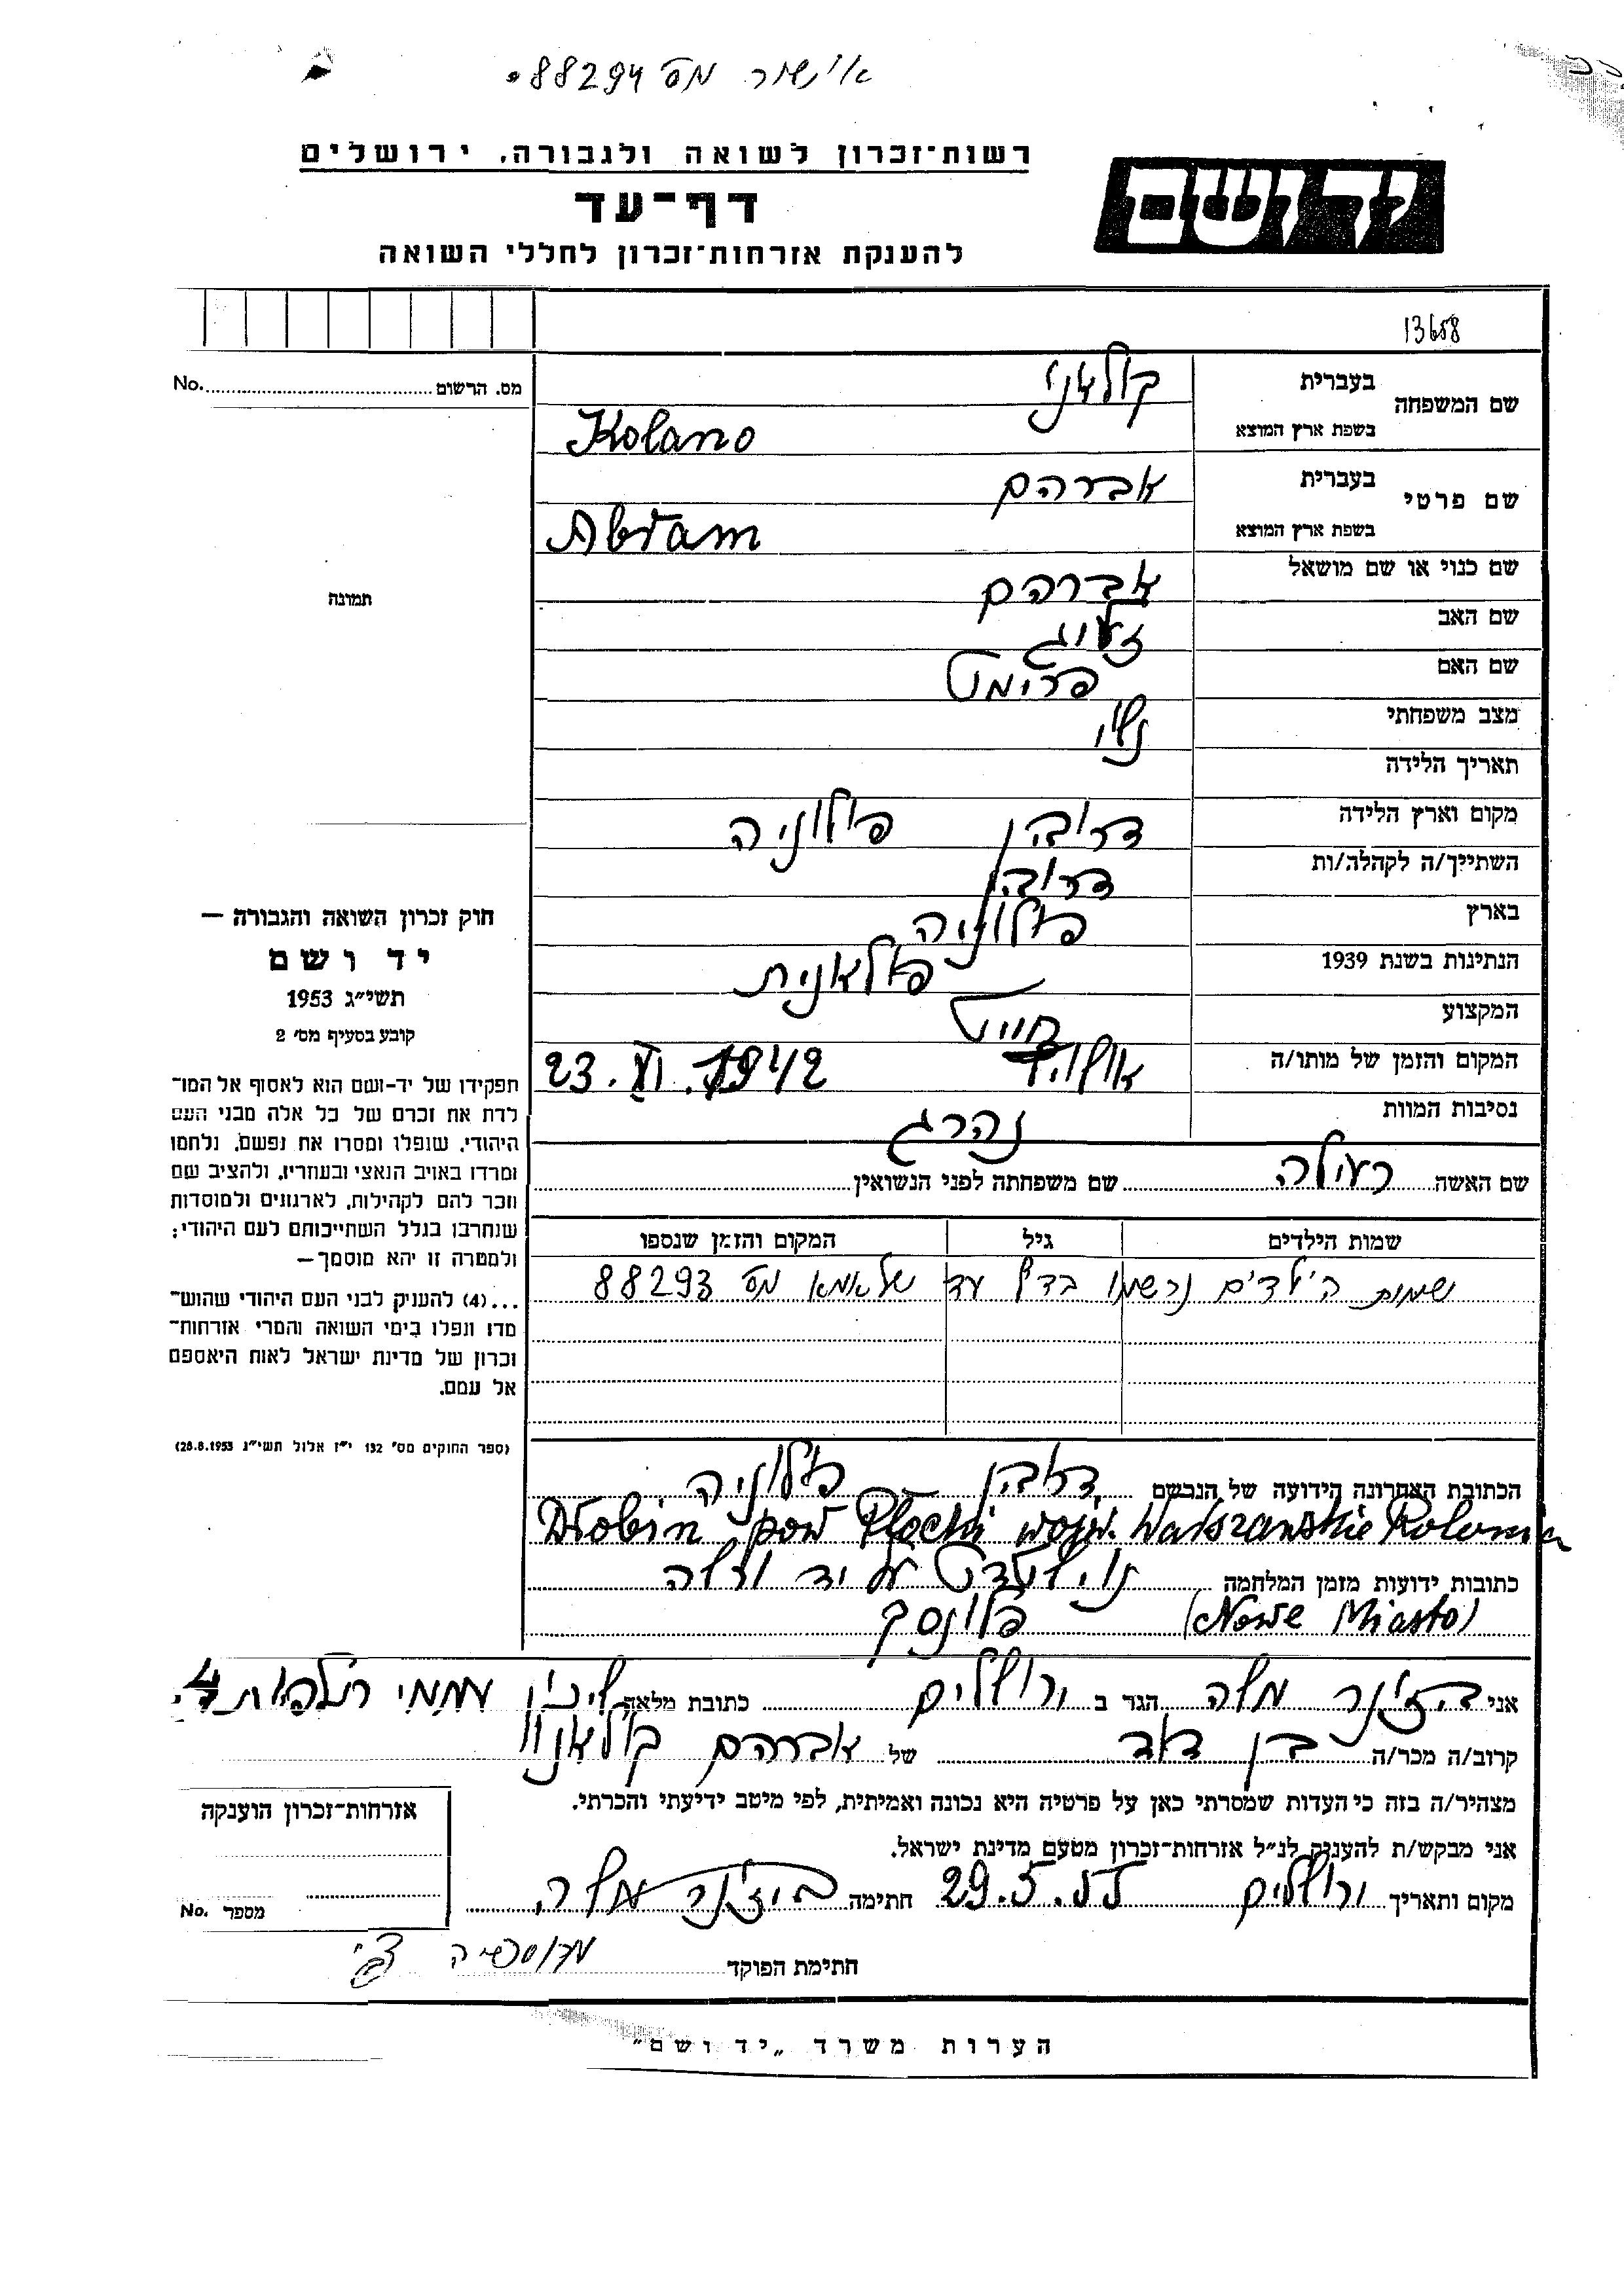 אישור מס 88294
רשות־זכרון לשואה ולגבורה, ירושלים
יד ושם
דף־עד
להענקת אזרחות־זכרון לחללי השואה
13658
מס. הרשום No.
שם המשפחה בעברית
בשפת ארץ המוצא Kolano
שם פרטי בעברית אברהם
בשפת ארץ המוצא Abram
שם כנוי או שם מושאל אברהם
תמונה
שם האב
שם האם
מצב משפחתי נשוי
תאריך הלידה
מקום וארץ הלידה דרובין פולוניה
השתייך/ה לקהלה/ות דרובין
בארץ פולוניה
הנתינות בשנת 1939 פולאנית
המקצוע חייט
המקום והזמן של מותו/ה 23. VI. 1942
נסיבות המוות נהרג
שם האשה שם משפחתה לפני הנשואין
שמות הילדים גיל המקום והזמן שנספו
שמות הילדים נרשמו בדף עד של אמא מס 88293
חוק זכרון השואה והגבורה —
יד ושם
תשי״ג 1953
קובע בסעיף מס׳ 2
תפקידו של יד־ושם הוא לאסוף אל המו־
לדת את זכרם של כל אלה מבני העם
היהודי, שנפלו ומסרו את נפשם, נלחמו
ומרדו באויב הנאצי ובעוזריו, ולהציב שם
וזכר להם לקהילות, לארגונים ולמוסדות
שנחרבו בגלל השתייכותם לעם היהודי;
ולמטרה זו יהא מוסמך—
...(4) להעניק לבני העם היהודי שהוש־
מדו ונפלו בימי השואה והמרי אזרחות־
זכרון של מדינת ישראל לאות היאספם
אל עמם.
(ספר החוקים מס׳ 132 י״ז אלול תשי״ג 28.8.1953)
הכתובת האחרונה הידועה של הנרשם דרובין פולוניה
Drobin pow Płocki wojw. Warszawskie Polonia
כתובות ידועות מזמן המלחמה נוישטדט על יד
(Nowe Miasto) פלונסק
אני משה הגר ב ירושלים כתובת מלאה שיכון ממשי תלפיות
קרוב/ה מכר/ה בן דוד של אברהם קולאנו
מצהיר/ה בזה כי העדות שמסרתי כאן על פרטיה היא נכונה ואמיתית, לפי מיטב ידיעתי והכרתי.
אני מבקש/ת להעניק לנ״ל אזרחות־זכרון מטעם מדינת ישראל.
מקום ותאריך ירושלים 29.5.55 חתימה משה
אזרחות־זכרון הוענקה
מספר No.
חתימת הפוקד
הערות משרד „יד ושם״